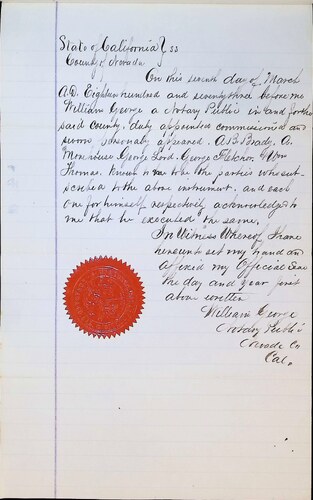 State of California } ss
County of Nevada
On this seventh day of March
A.D. Eighteen hundred and seventy three before me
William George a Notary Public in and for the
said County, duly appointed commissioned and
sworn personally appeared. A. B. Brady. A.
Monrouse George Lord. George Fletcher. Wm
Thomas. Known to me to be the parties who sub-
scribed to the above instrument. and each
one for himself respectively acknowledged to
me that he executed the same,
In Witness Whereof I have
hereunto set my hand and
affixed my Official Seal
the day and year first
above written
William George
Notary Public
Nevada Co
Cal.